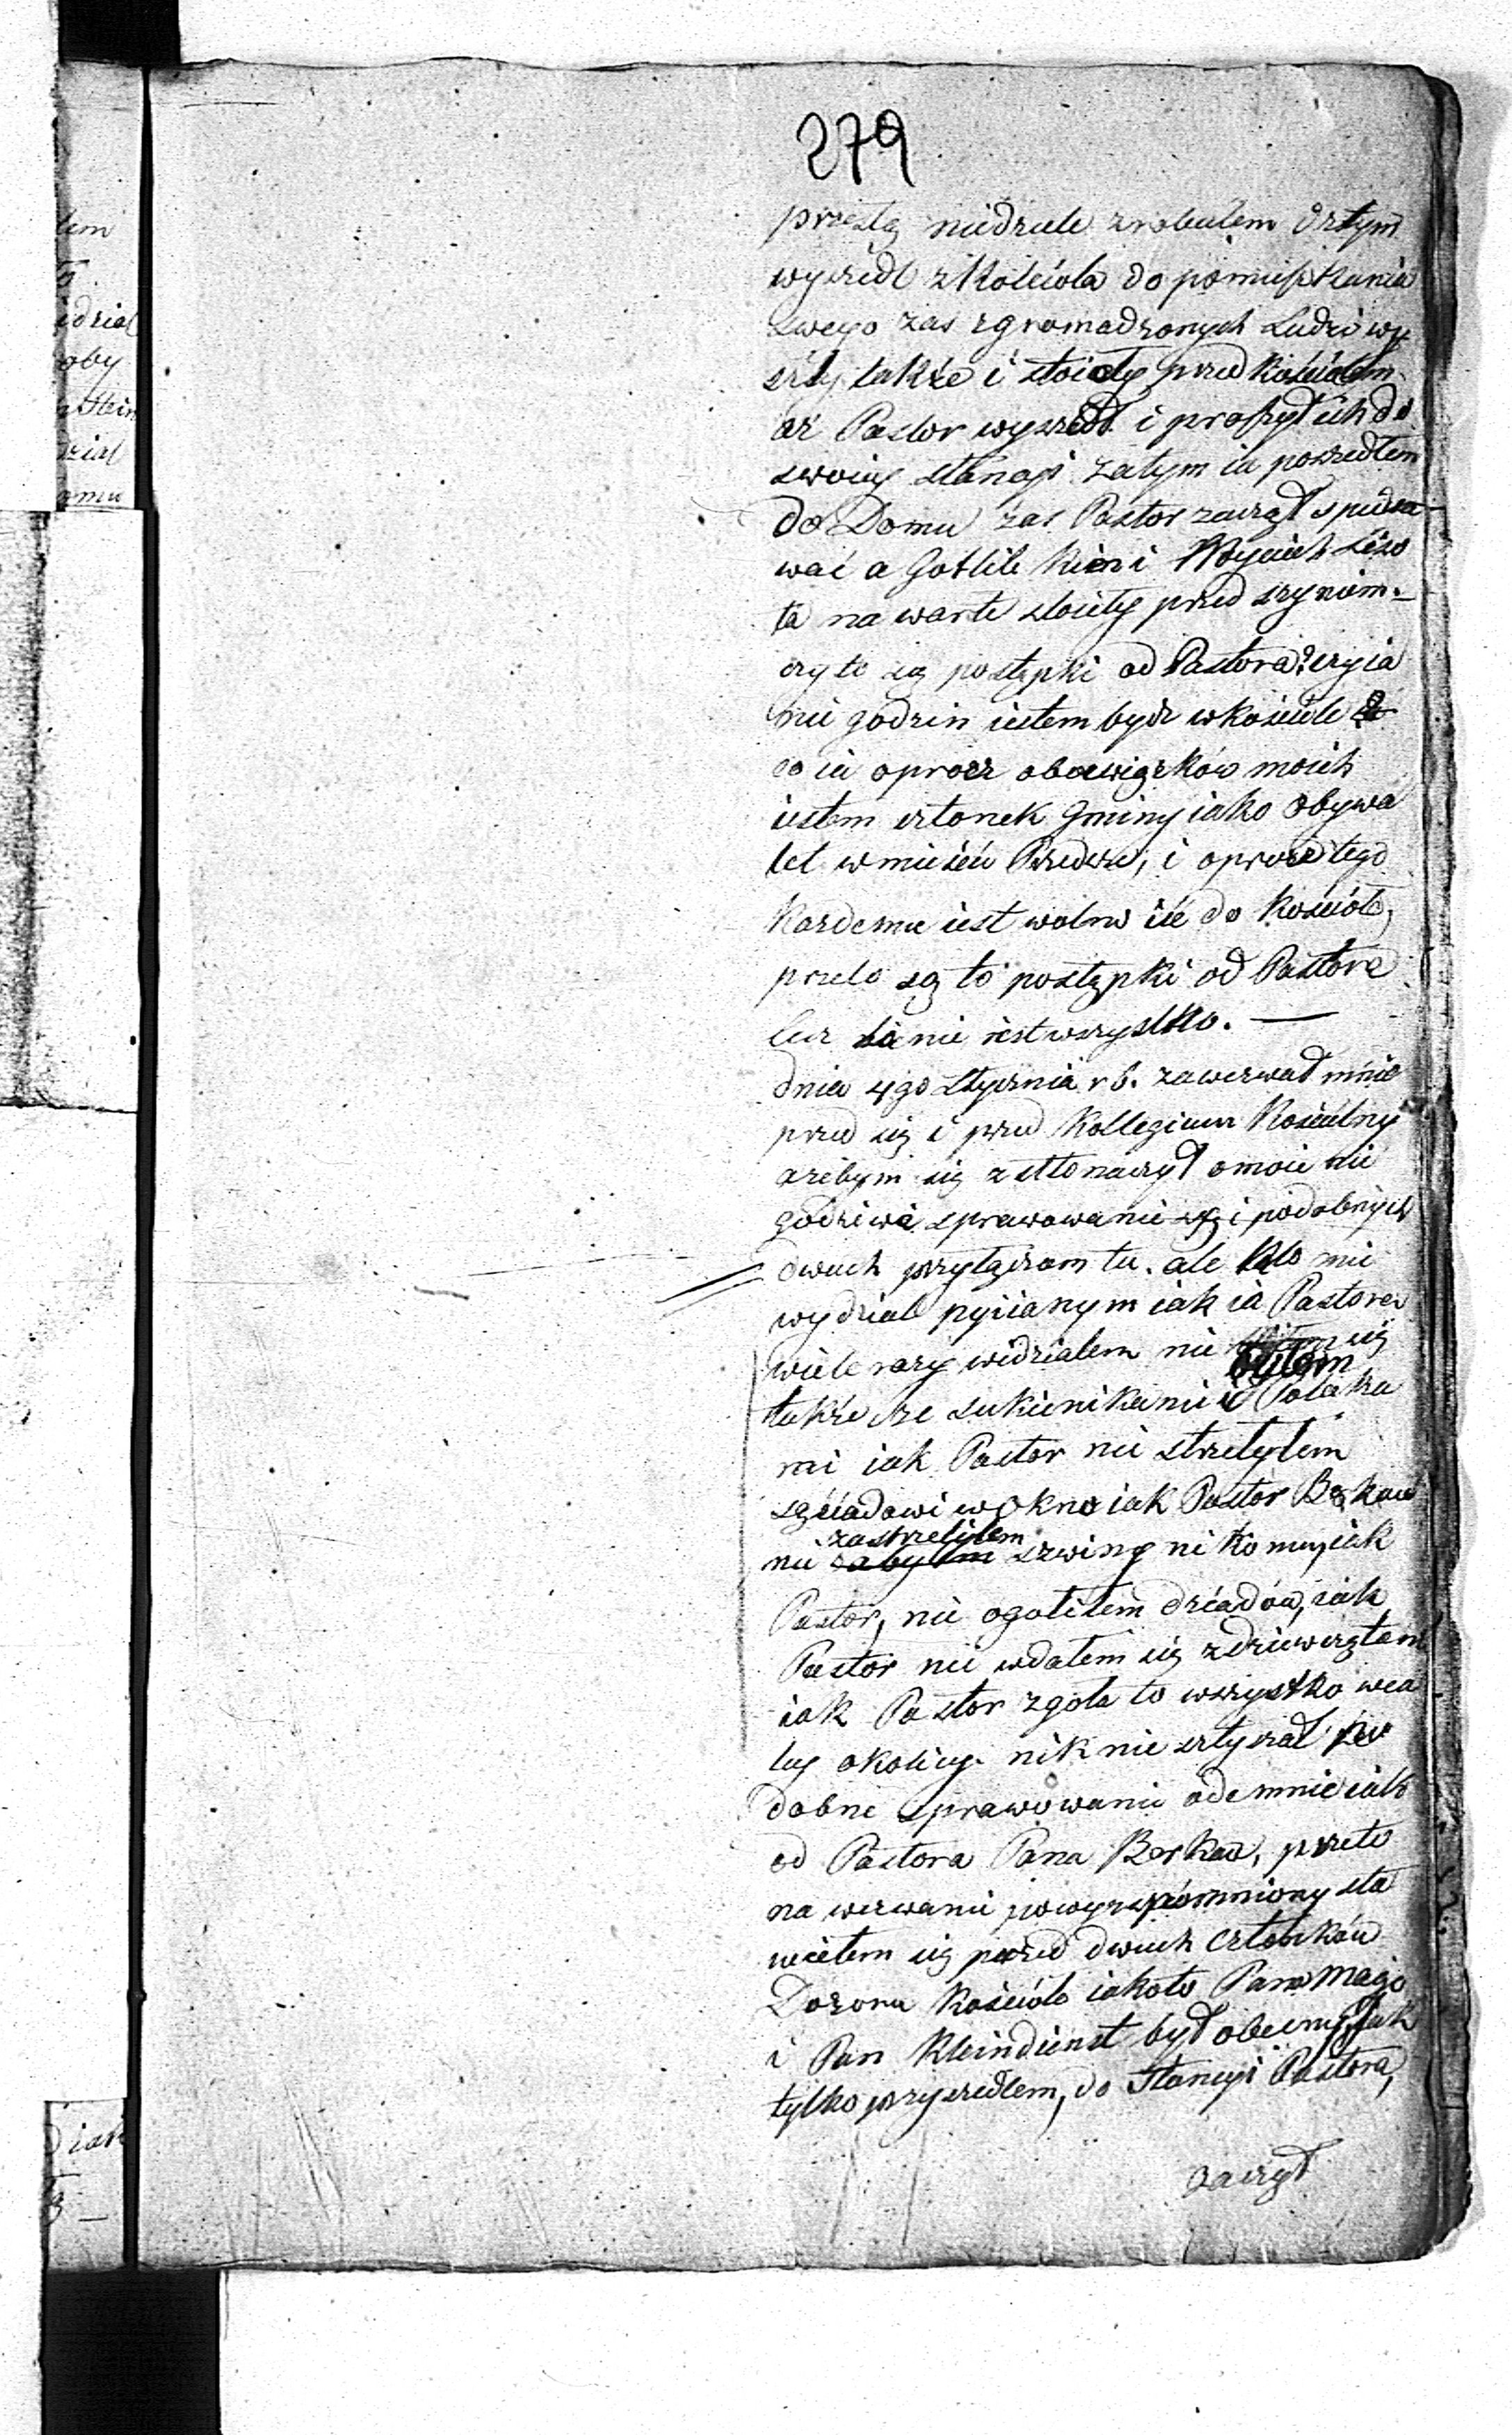 279
przeszłą niedziele zrobiułem Zatym
wyszedł z Kościoła do pomieszkania
swego zas zgromadzonych Ludzi wy
szły także i stoieły przed Kościołem
aż Pastor wyszedł i prosszył ich do
swoiey stancyi zatym ia poszedłem
do Domu zas Pastor zaczął spiewa-
wać a Gotlib Kien i Woyciech
ta na warte stoieły przed
czyto są postępki od Pastora? czyia
nie godzien iestem bydz w kościele
co ia oprocz obowiązków moich
iestem członek Gminy iako Obywa
tel w mieście Przedecz, i oprocz tego
Kazdemu iest wolno iść do Kościoło,
przeto są to postępki od Pastora
lecz to nie iest wszystko. —
dnia 4go Stycznia r b. zawezwał mnie
przed się i przed Kollegium Kościelny
azebym się z tłonaczył o moie nie
godziwe sprawowanie i podobnych
dwuch przyłączam tu. ale kto mie
wydział pyianym iak ia Pastora
wiele razy widziałem nie biłem się
także ze sukienikami i Polaka
mi iak Pastor nie strzelyłem
sąsiadowi w okno iak Pastor Berkau
nie zastrzeliłem szwiny ni komu, iak
Pastor, nie ogoliłem dziadów, iak
Pastor nie wdałem się z dziewczętami
iak Pastor zgoła to wszystko w ca
łey okolicy. nik nie szłyszał po
dobne sprawowanie odemnie iak
od Pastora Pana Berkau, przeto
na wezwanie powyzspomniony sta
wiełem się przed dwuch Członków
Dozoru Kościoło iakoto Pana
i Pan Kleindienst był obecny, Jak
tylko przyszedłem, do Stancyi Pastora,
zaczął